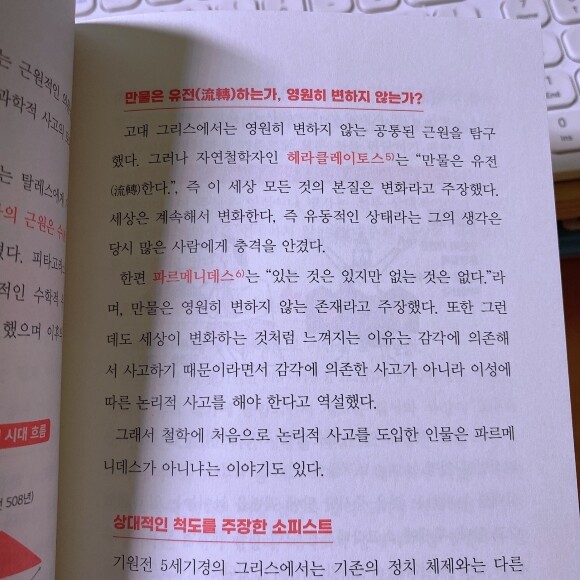 는 근원적인
과학적 사고의
는 탈레스에서
의 근원은 수
했다. 피타고
적인 수학적
했으며 이후
시대 흐름
508년)
만물은 유전(流轉)하는가, 영원히 변하지 않는가?
고대 그리스에서는 영원히 변하지 않는 공통된 근원을 탐구
했다. 그러나 자연철학자인 헤라클레이토스5)는 “만물은 유전
(流轉)한다.”, 즉 이 세상 모든 것의 본질은 변화라고 주장했다.
세상은 계속해서 변화한다, 즉 유동적인 상태라는 그의 생각은
당시 많은 사람에게 충격을 안겼다.
한편 파르메니데스6)는 “있는 것은 있지만 없는 것은 없다.”라
며, 만물은 영원히 변하지 않는 존재라고 주장했다. 또한 그런
데도 세상이 변화하는 것처럼 느껴지는 이유는 감각에 의존해
서 사고하기 때문이라면서 감각에 의존한 사고가 아니라 이성에
따른 논리적 사고를 해야 한다고 역설했다.
그래서 철학에 처음으로 논리적 사고를 도입한 인물은 파르메
니데스가 아니냐는 이야기도 있다.
상대적인 척도를 주장한 소피스트
기원전 5세기경의 그리스에서는 기존의 정치 체제와는 다른